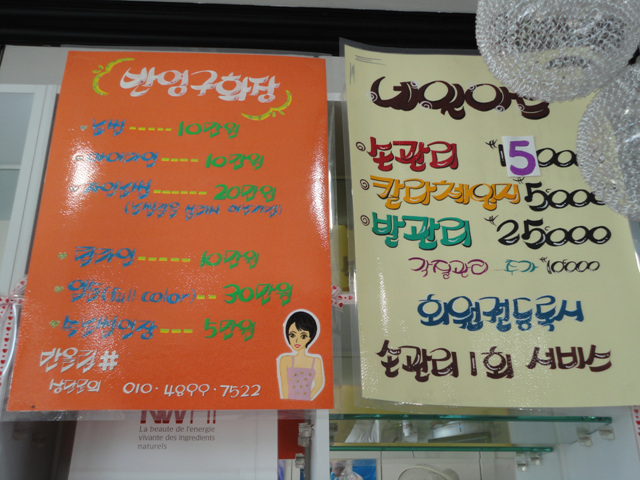 반영구화장
눈썹 ----- 10만원
----- 10만원
----- 20만원
----- 10만원
입술(full color)-- 30만원
---- 5만원
상담문의 010·4899·7522
La beauté de l'énergie
vivante des ingrédients
naturels
네일아트
손관리 ₩15000
칼라체인지 ₩5000
발관리 ₩25000
각질관리 추가 ₩10000
회원권등록시
손관리 1회 서비스